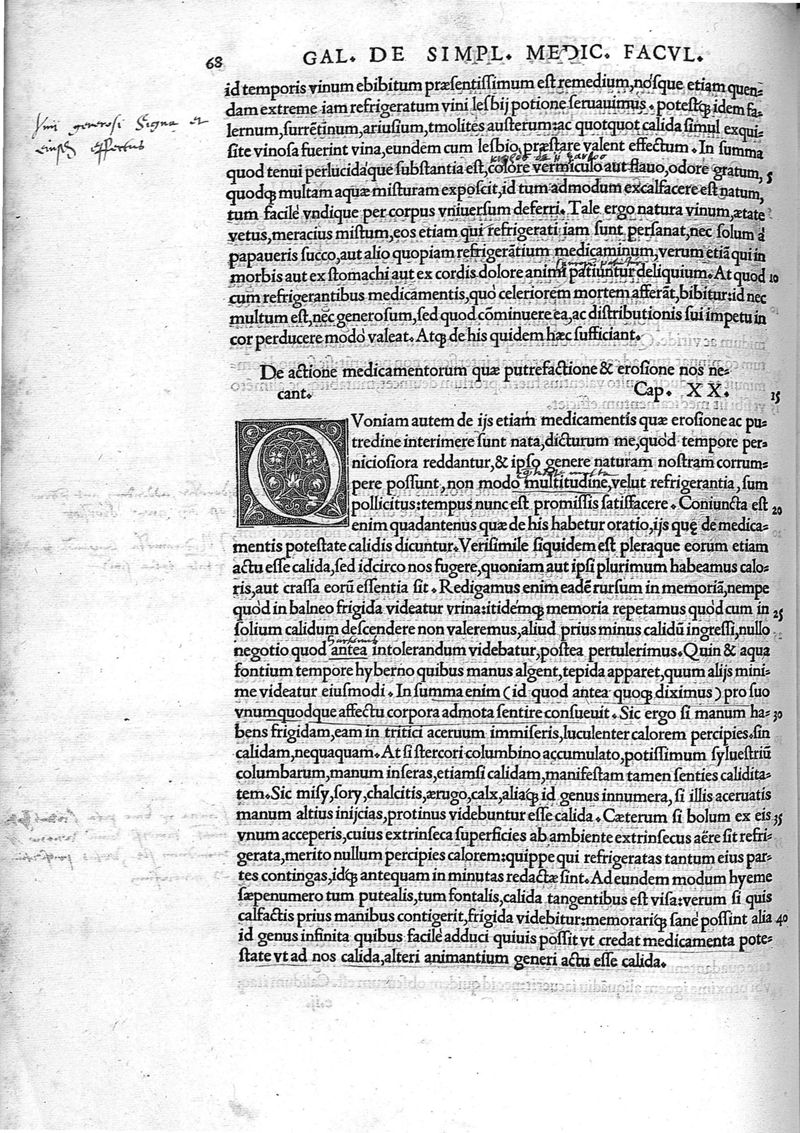 68
GAL. DE SIMPL. MEDIC. FACVL.
id temporis vinum ebibitum præsentissimum est remedium, nósque etiam quen-
dam extreme iam refrigeratum vini lesbij potione seruauimus. potestq́; idem fa-
Vini generosi Signa et
lernum, surrētinum, ariusium, tmolites austerum: ac quotquot calida simul exqui-
effectus
site vinosa fuerint vina, eundem cum lesbio præstare valent effectum. In summa
quod tenui perlucidáque substantia est, colore vermiculo aut flauo, odore gratum, 5
quodq́; multam aquæ misturam exposcit, id tum admodum excalfacere est natum,
tum facile vndique per corpus vniuersum deferri. Tale ergo natura vinum, ætate
vetus, meracius mistum, eos etiam qui refrigerati iam sunt persanat, nec solum à
papaueris succo, aut alio quopiam refrigerātium medicaminum, verum etiā qui in
morbis aut ex stomachi aut ex cordis dolore animi patiuntur deliquium. At quod 10
cum refrigerantibus medicamentis, quò celeriorem mortem afferāt, bibitur: id nec
multum est, nec generosum, sed quod cōminuere ea, ac distributionis sui impetu in
cor perducere modò valeat. Atq; de his quidem hæc sufficiant.
De actione medicamentorum quæ putrefactione & erosione nos ne-
cant. Cap. XX. 15
QVoniam autem de ijs etiam medicamentis quæ erosione ac pu-
tredine interimere sunt nata, dicturum me, quòd tempore per-
niciosiora reddantur, & ipso genere naturam nostram corrum-
pere possunt, non modò multitudine, velut refrigerantia, sum
pollicitus: tempus nunc est promissis satisfacere. Coniuncta est 20
enim quadantenus quæ de his habetur oratio, ijs quę de medica-
mentis potestate calidis dicuntur. Verisimile siquidem est pleraque eorum etiam
actu esse calida, sed idcirco nos fugere, quoniam aut ipsi plurimum habeamus calo-
ris, aut crassa eorū essentia sit. Redigamus enim eadē rursum in memoriā, nempe
quòd in balneo frigida videatur vrina: itidemq́; memoria repetamus quòd cum in 25
solium calidum descendere non valeremus, aliud prius minus calidū ingressi, nullo
negotio quod antea intolerandum videbatur, postea pertulerimus. Quin & aqua
fontium tempore hyberno quibus manus algent, tepida apparet, quum alijs mini-
me videatur eiusmodi. In summa enim (id quod antea quoq; diximus) pro suo
vnumquodque affectu corpora admota sentire consueuit. Sic ergo si manum ha- 30
bens frigidam, eam in tritici aceruum immiseris, luculenter calorem percipies. sin
calidam, nequaquam. At si stercori columbino accumulato, potissimum syluestriū
columbarum, manum inseras, etiamsi calidam, manifestam tamen senties calidita-
tem. Sic misy, sory, chalcitis, ærugo, calx, aliaq́; id genus innumera, si illis aceruatis
manum altius inijcias, protinus videbuntur esse calida. Cæterum si bolum ex eis 35
vnum acceperis, cuius extrinseca superficies ab ambiente extrinsecus aëre sit refri-
gerata, merito nullum percipies calorem: quippe qui refrigeratas tantum eius par-
tes contingas, idq́; antequam in minutas redactæ sint. Ad eundem modum hyeme
sæpenumero tum putealis, tum fontalis, calida tangentibus est visa: verum si quis
calfactis prius manibus contigerit, frigida videbitur: memorariq́; sanè possint alia 40
id genus infinita quibus facile adduci quiuis possit vt credat medicamenta pote-
state vt ad nos calida, alteri animantium generi actu esse calida.